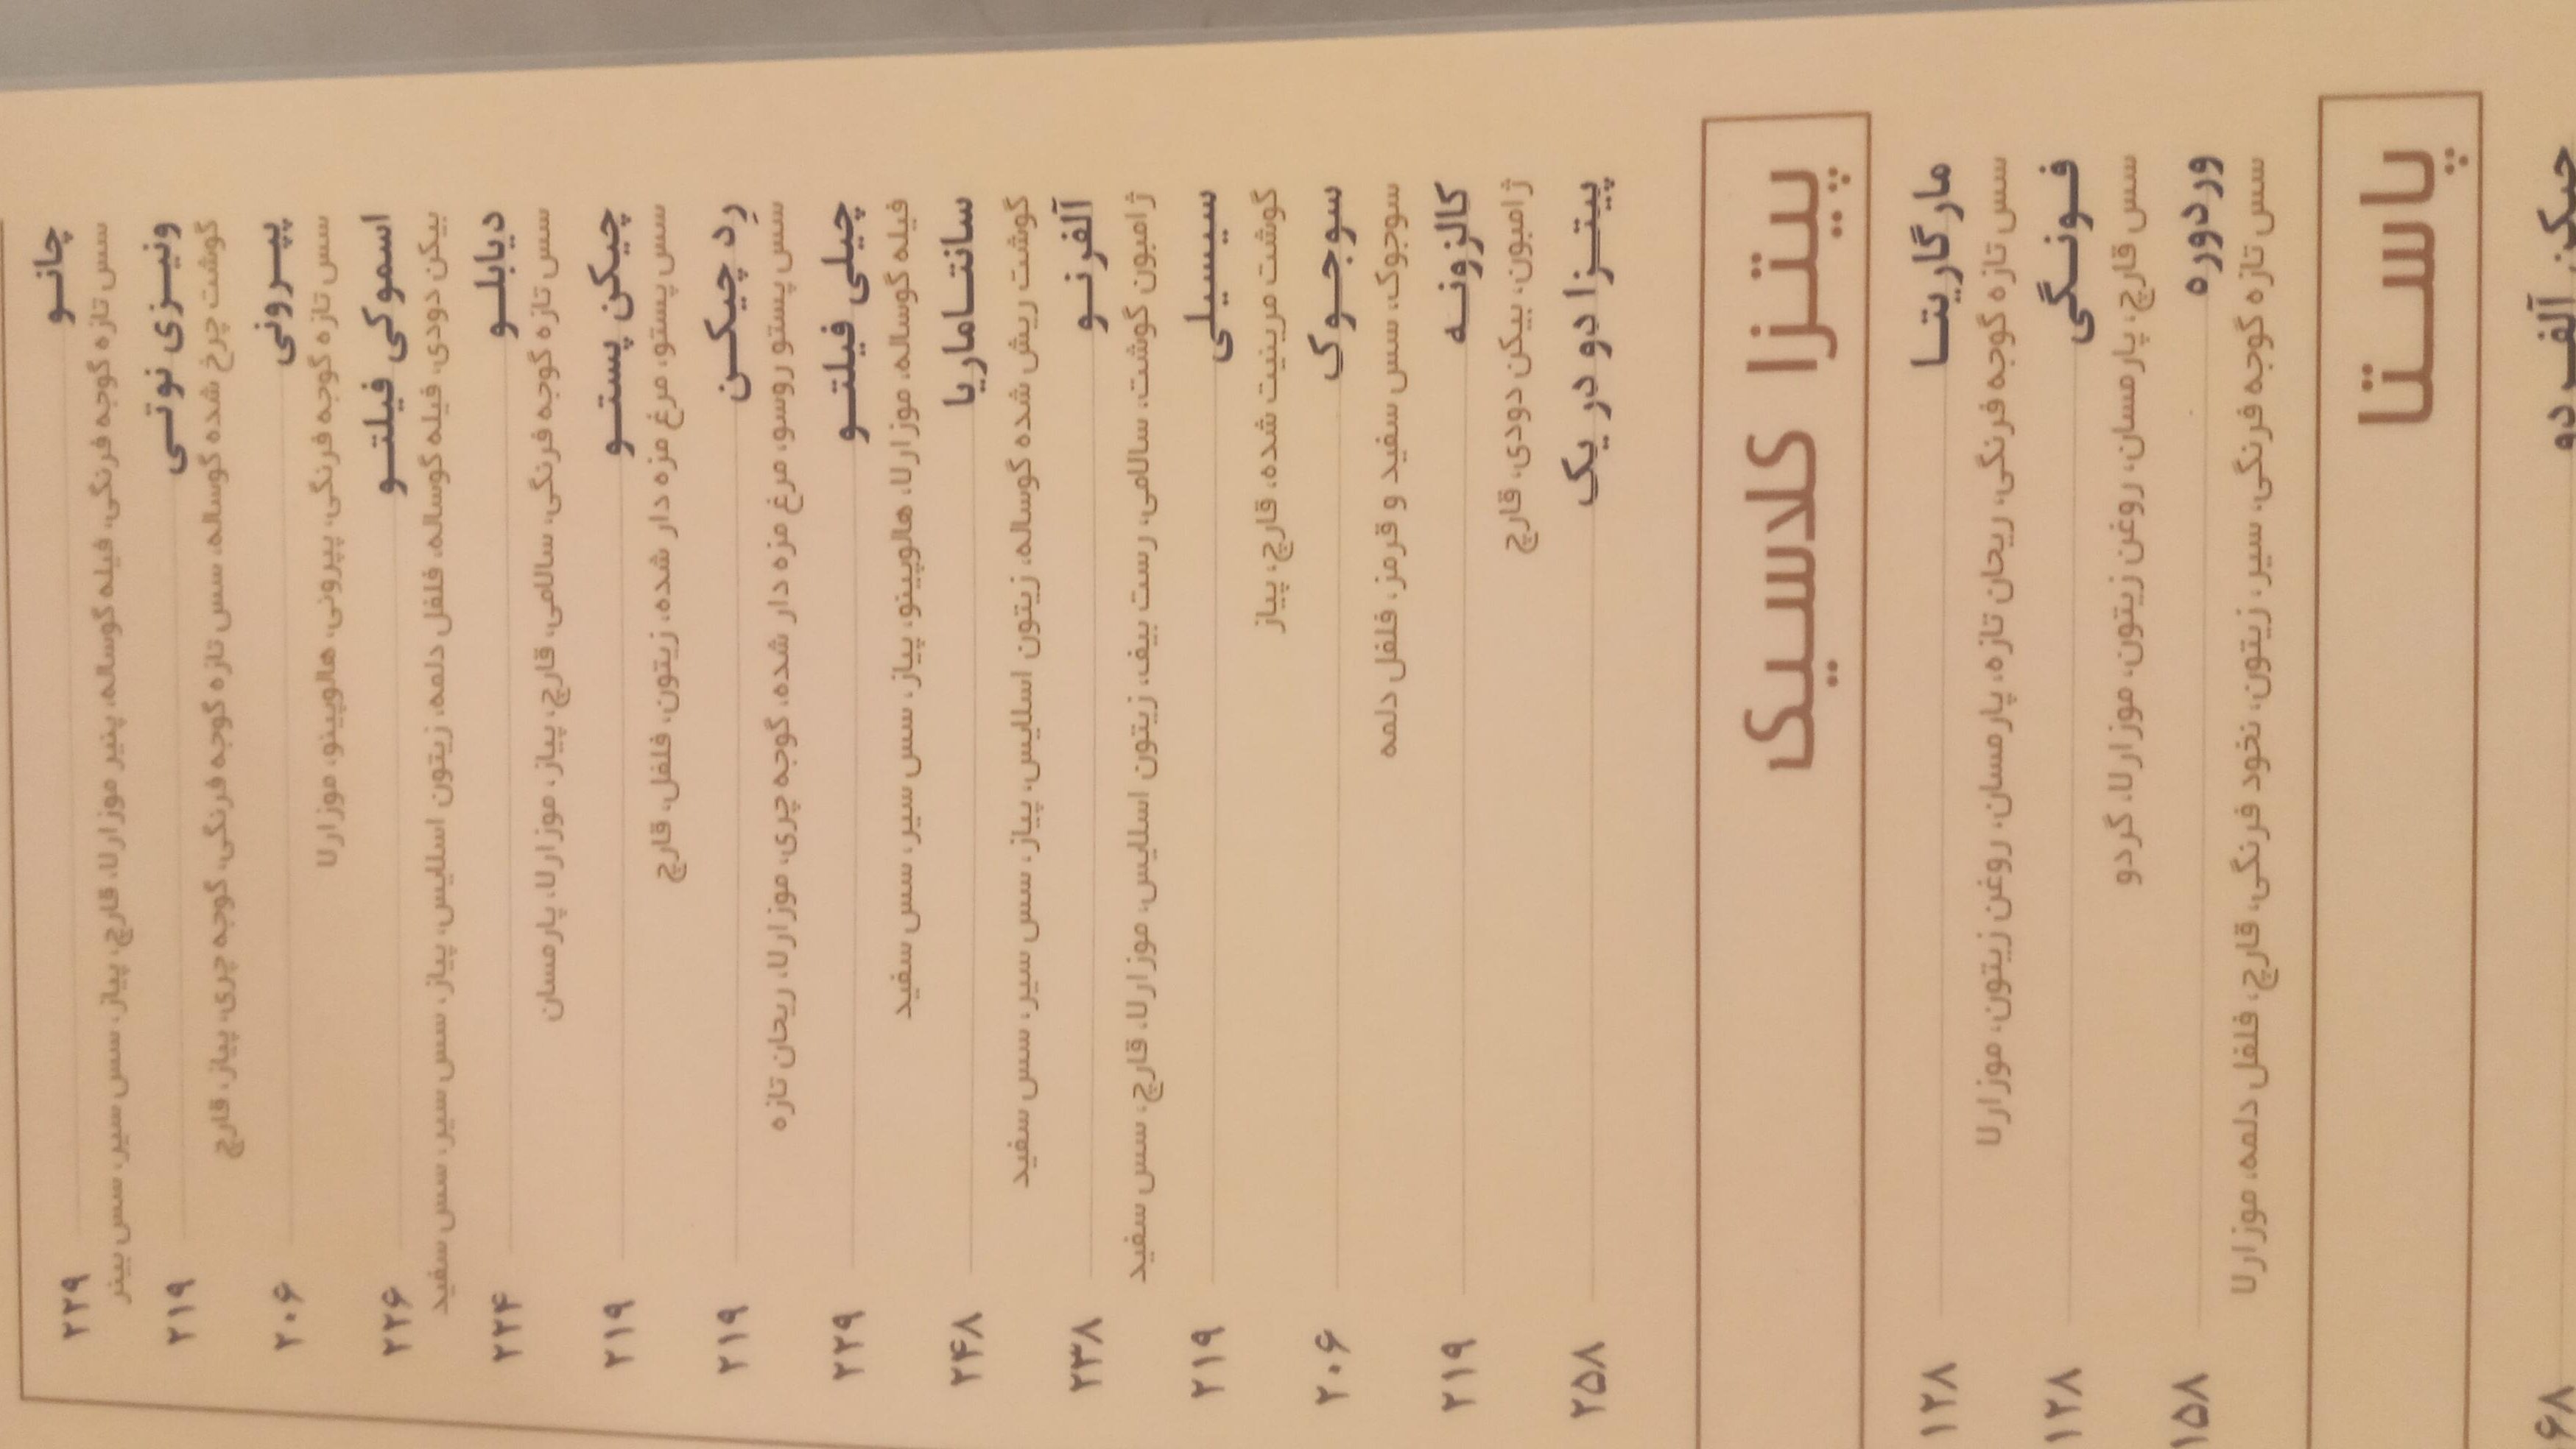 چانو ۲۲۹
سس تازه گوجه فرنگی، فیله گوساله، پنیر موزارلا، قارچ، پیاز، سس سیر، سس بینر
ونیزی نوتی ۲۱۹
گوشت چرخ شده گوساله، سس تازه گوجه فرنگی، گوجه چری، پیاز، قارچ
پپرونی ۲۰۶
سس تازه گوجه فرنگی، پپرونی، هالوپینو، موزارلا
اسموکی فیلتو ۲۲۶
بیکن دودی، فیله گوساله، فلفل دلمه، زیتون اسلایس، پیاز، سس سیر، سس سفید
دیابلو ۲۲۴
سس تازه گوجه فرنگی، سالامی، قارچ، پیاز، موزارلا، پارمسان
چیکن پستو ۲۱۹
سس پستو، مرغ مزه دار شده، زیتون، فلفل، قارچ
رِد چیکن ۲۱۹
سس پستو روسو، مرغ مزه دار شده، گوجه چری، موزارلا، ریحان تازه
چیلی فیلتو ۲۲۹
فیله گوساله، موزارلا، هالوپینو، پیاز، سس سیر، سس سفید
سانتاماریا ۲۴۸
گوشت ریش شده گوساله، زیتون اسلایس، پیاز، سس سیر، سس سفید
آلفرنو ۲۳۸
ژامبون گوشت، سالامی، رست بیف، زیتون اسلایس، موزارلا، قارچ، سس سفید
سیسیلی ۲۱۹
گوشت مرینیت شده، قارچ، پیاز
سوجوک ۲۰۶
سوجوک، سس سفید و قرمز، فلفل دلمه
کالزونه ۲۱۹
ژامبون، بیکن دودی، قارچ
پیتزا دو در یک ۲۵۸
پیتزا کلاسیک
مارگاریتا ۱۲۸
سس تازه گوجه فرنگی، ریحان تازه، پارمسان، روغن زیتون، موزارلا
فونگی ۱۲۸
سس قارچ، پارمسان، روغن زیتون، موزارلا، گردو
وردوره ۱۵۸
سس تازه گوجه فرنگی، سیر، زیتون، نخود فرنگی، قارچ، فلفل دلمه، موزارلا
پاستا
چیکن آلفردو